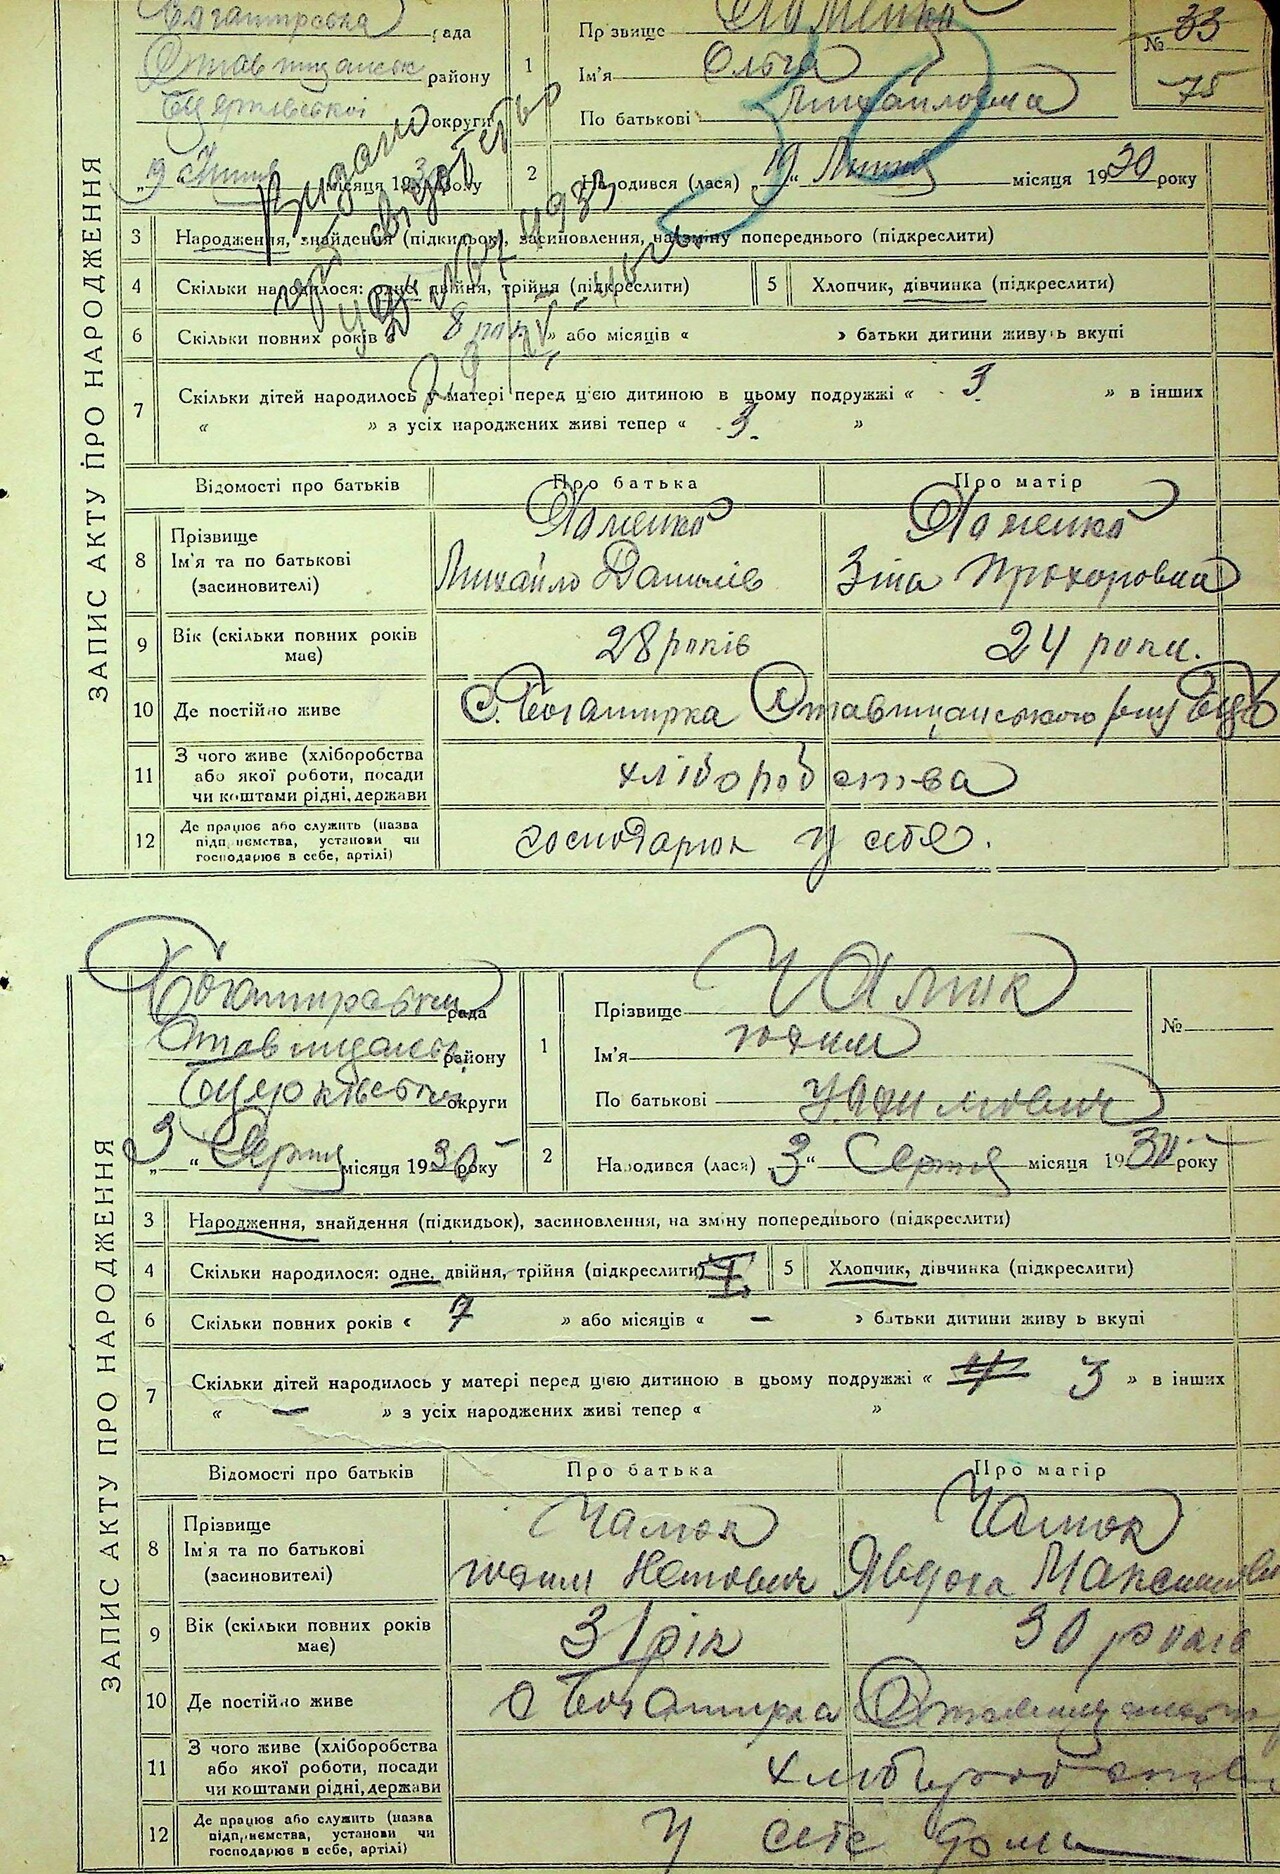 ЗАПИС АКТУ ПРО НАРОДЖЕННЯ
Богатирська рада
Ставищанськ району
Церківської округи
1 Прізвище
Ім'я Ольга
По батькові Михайловна
№ 33
75
„9“ Липня місяця 1930 року
2 Народився (лася) „9“ Липня місяця 1930 року
Видано
3 Народження, знайдення (підкидьок), засиновлення, на зміну попереднього (підкреслити)
4 Скільки народилося: одне, двійня, трійня (підкреслити)
5 Хлопчик, дівчинка (підкреслити)
6 Скільки повних років « 8 » або місяців « » батьки дитини живуть вкупі
7 Скільки дітей народилось у матері перед цією дитиною в цьому подружжі « 3 » в інших
« » з усіх народжених живі тепер « 3. »
Відомості про батьків Про батька Про матір
8 Прізвище
Ім'я та по батькові
(засиновителі)
Михайло Данилів
Зіна Прохоровна
9 Вік (скільки повних років має) 28 років 24 роки.
10 Де постійно живе с. Богатирка Ставищанського р-ну
11 З чого живе (хліборобства або якої роботи, посади чи коштами рідні, держави хліборобства
12 Де працює або служить (назва підприємства, установи чи господарює в себе, артілі) господарює у себе.
ЗАПИС АКТУ ПРО НАРОДЖЕННЯ
рада
району
округи
1 Прізвище Чалюк
Ім'я Юхим
По батькові
№
„3“ Серпня місяця 1930 року
2 Народився (лася) „3“ Серпня місяця 1930 року
3 Народження, знайдення (підкидьок), засиновлення, на зміну попереднього (підкреслити)
4 Скільки народилося: одне, двійня, трійня (підкреслити)
5 Хлопчик, дівчинка (підкреслити)
6 Скільки повних років « 7 » або місяців « – » батьки дитини живуть вкупі
7 Скільки дітей народилось у матері перед цією дитиною в цьому подружжі « 4 3 » в інших
« – » з усіх народжених живі тепер « »
Відомості про батьків Про батька Про матір
8 Прізвище
Ім'я та по батькові
(засиновителі)
Чалюк Чалюк
Юхим
Явдоха
9 Вік (скільки повних років має) 31 рік 30 років
10 Де постійно живе с Богатирка
11 З чого живе (хліборобства або якої роботи, посади чи коштами рідні, держави
12 Де працює або служить (назва підприємства, установи чи господарює в себе, артілі) у себе дома